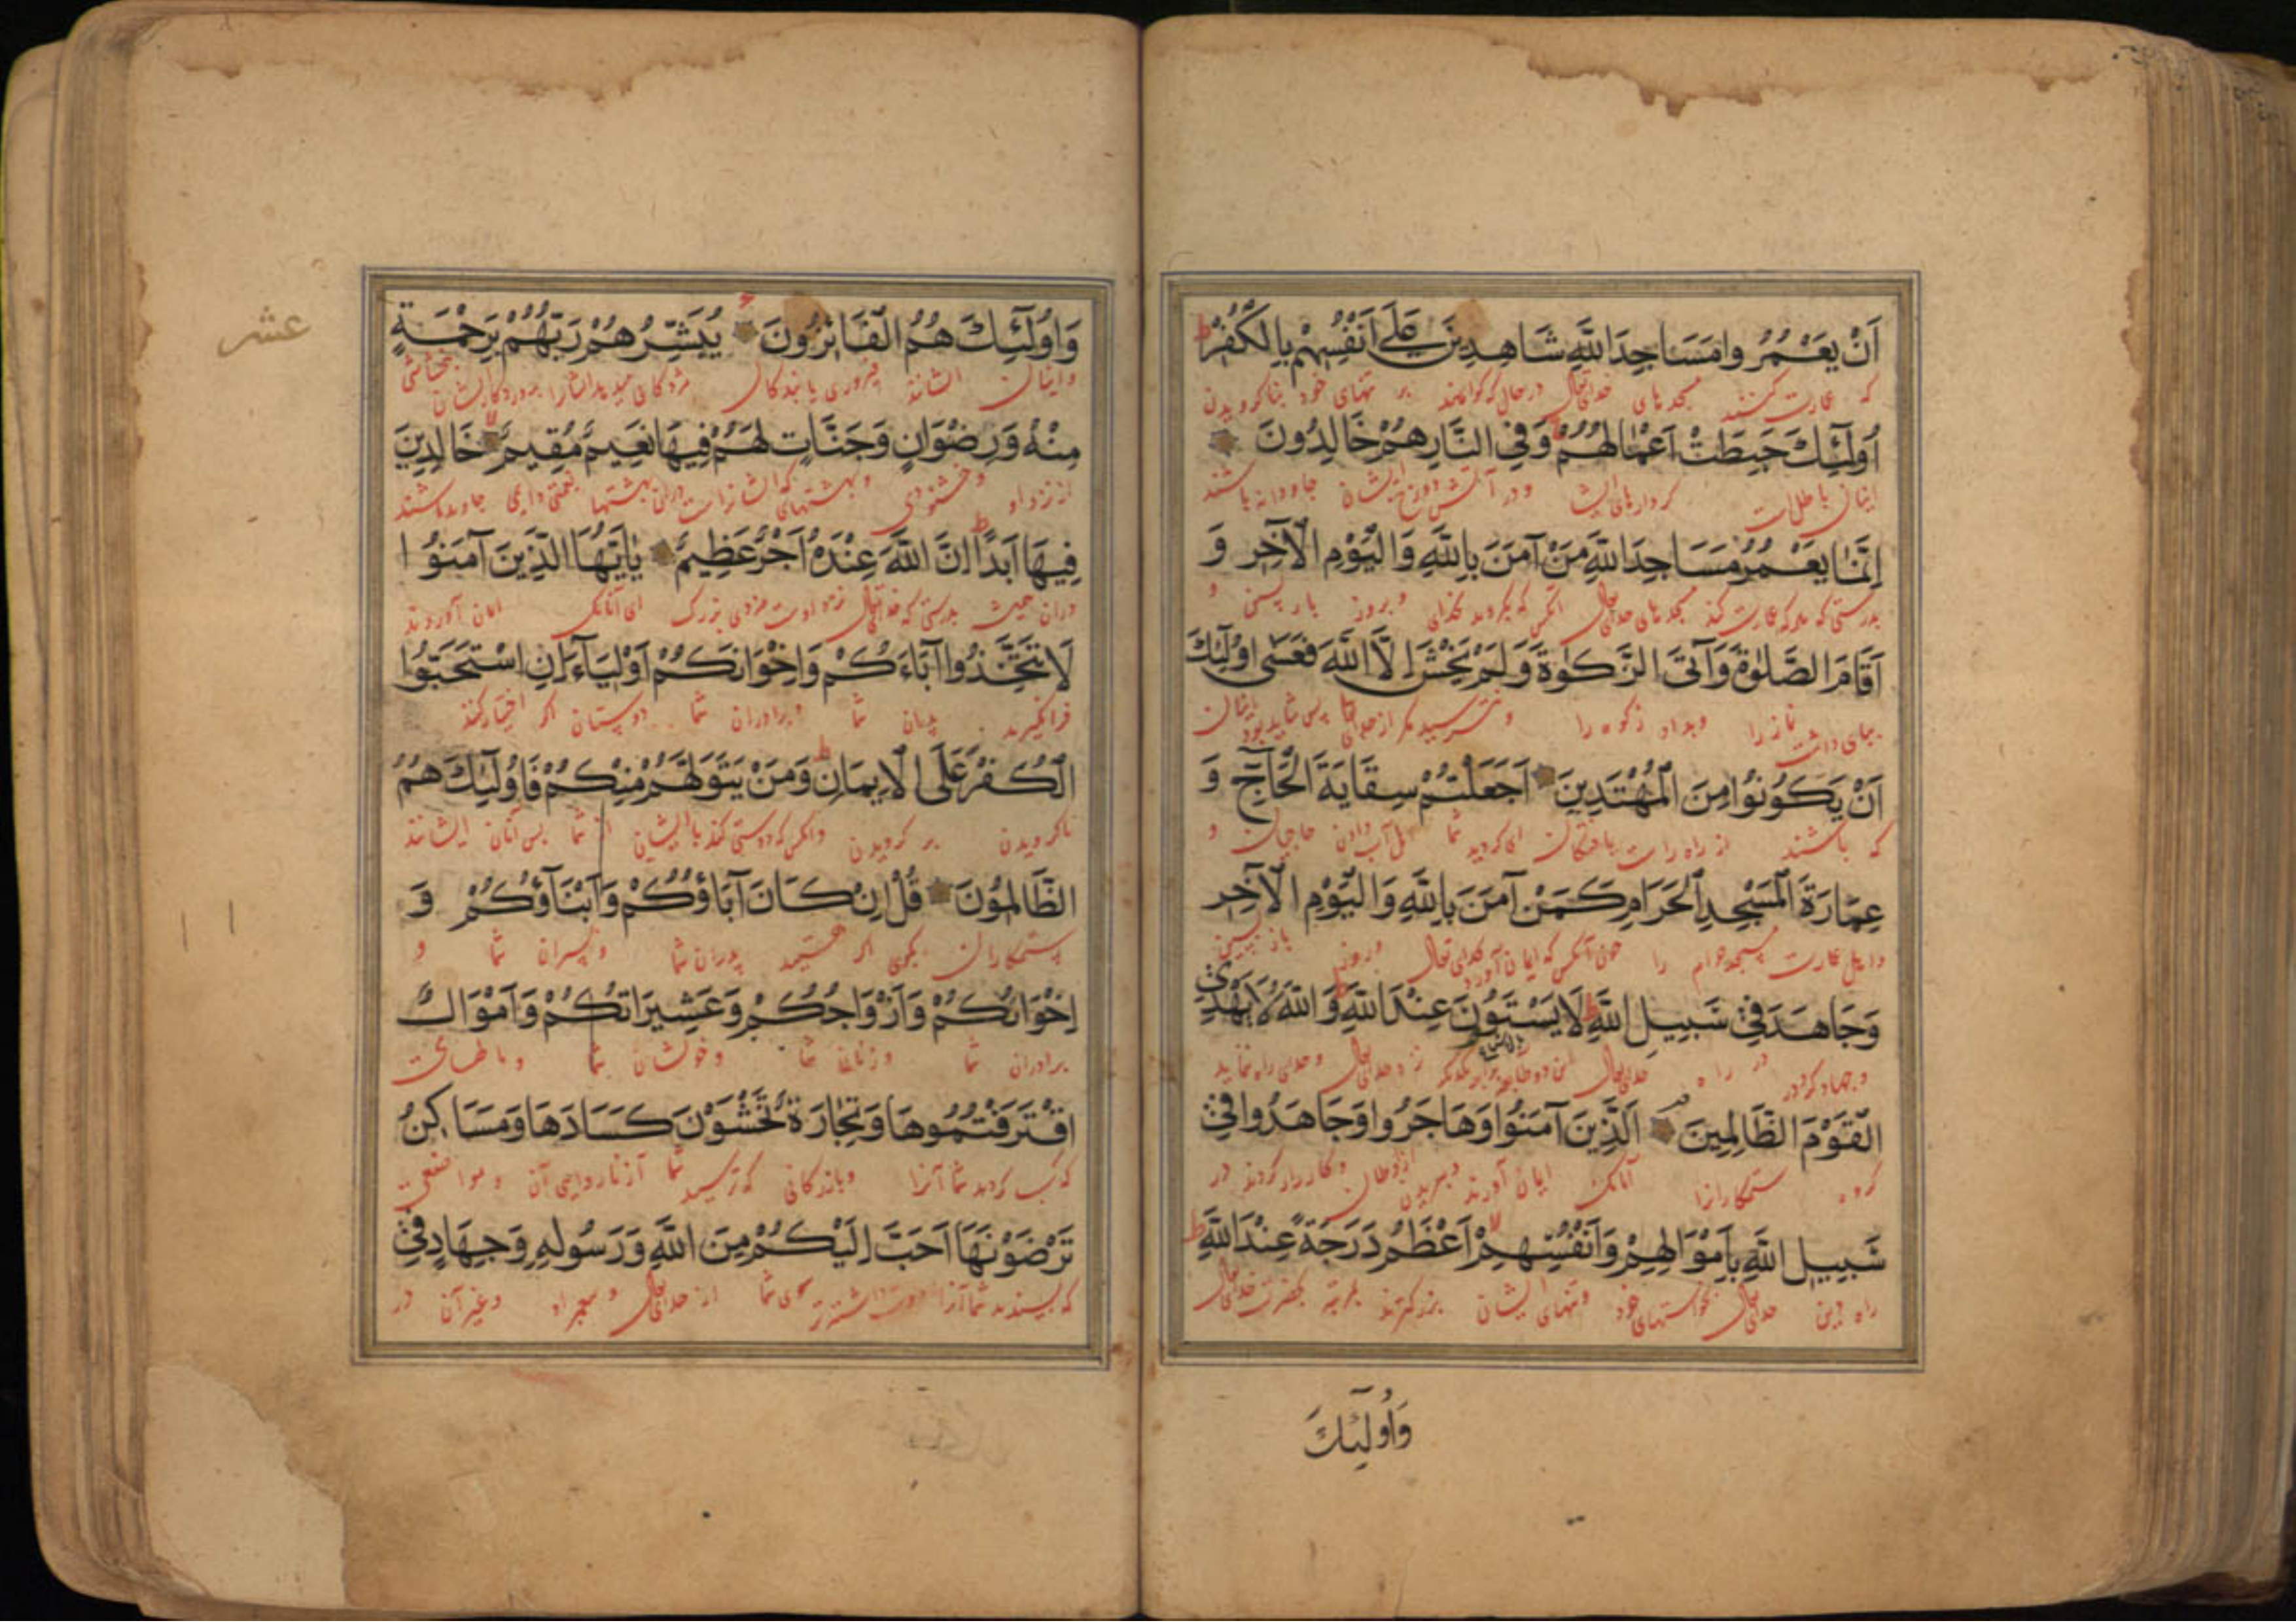 اَنْ يَعْمُرُوا مَسَاجِدَ اللَّهِ شَاهِدِينَ عَلَى اَنْفُسِهِمْ بِالْكُفْرِ
که عمارت کنند مسجدهای خدایتعالی درحال که گواهند بر تنهای خود بناکرویدن
اُولَٓئِكَ حَبِطَتْ اَعْمَالُهُمْ وَفِي النَّارِ هُمْ خَالِدُونَ
اینان باطل است کردارهای ایشان ودر آتش دوزخ ایشان جاودانه باشند
اِنَّمَا يَعْمُرُ مَسَاجِدَ اللَّهِ مَنْ آمَنَ بِاللَّهِ وَالْيَوْمِ الْآخِرِ وَ
بدرستی که عمارت کند مسجدهای خدایتعالی آنکس که بکرود بخدای وبروز بازپسین و
اَقَامَ الصَّلٰوةَ وَآتَى الزَّكٰوةَ وَلَمْ يَخْشَ اِلَّا اللَّهَ فَعَسٰى اُولَٓئِكَ
بپای داشت نماز را وبداد زکوه را ونترسید مکر از خدای پس شاید بود اینان
اَنْ يَكُونُوا مِنَ الْمُهْتَدِينَ اَجَعَلْتُمْ سِقَايَةَ الْحَٓاجِّ وَ
که باشند از راه راست یافتکان ای کردید شما اهل آب دادن حاجیان و
عِمَارَةَ الْمَسْجِدِ الْحَرَامِ كَمَنْ آمَنَ بِاللَّهِ وَالْيَوْمِ الْآخِرِ
واهل عمارت مسجد حرام را چون آنکس که ایمان آورد بخدای تعالی وروز بازپسین
وَجَاهَدَ فِي سَبِيلِ اللَّهِ لَا يَسْتَوُونَ عِنْدَ اللَّهِ وَاللَّهُ لَا يَهْدِي
وجهاد کرد در راه خدایتعالی این دو طایفه برابر یکدیکر نزد خدایتعالی وخدای راه ننماید
الْقَوْمَ الظَّالِمِينَ اَلَّذِينَ آمَنُوا وَهَاجَرُوا وَجَاهَدُوا فِي
کروه ستمکارانرا آنانک ایمان آوردند وببریدند از اوطان وکارزار کردند در
سَبِيلِ اللَّهِ بِاَمْوَالِهِمْ وَاَنْفُسِهِمْ اَعْظَمُ دَرَجَةً عِنْدَ اللَّهِ
راه دین خدایتعالی بخواستهای خود وتنهای ایشان بزرکترند بمرتبه بحضرت خدایتعالی
وَاُولَٓئِكَ
عشر
وَاُولَٓئِكَ هُمُ الْفَائِزُونَ يُبَشِّرُهُمْ رَبُّهُمْ بِرَحْمَةٍ
واینان ایشانند فیروزی یابندکان مژدکانی میدهد ایشانرا پروردکار ایشان ببخشایشی
مِنْهُ وَرِضْوَانٍ وَجَنَّاتٍ لَهُمْ فِيهَا نَعِيمٌ مُقِيمٌ خَالِدِينَ
از نزد او وخشنودی وبهشتهای که ایشانراست دران بهشتها نعمتی دایمی جاوید باشند
فِيهَا اَبَدًا اِنَّ اللَّهَ عِنْدَهُ اَجْرٌ عَظِيمٌ يَا اَيُّهَا الَّذِينَ آمَنُوا
دران همیشه بدرستی که خدایتعالی نزد اوست مزدی بزرک ای آنانک ایمان آوردند
لَا تَتَّخِذُوا آبَاءَكُمْ وَاِخْوَانَكُمْ اَوْلِيَاءَ اِنِ اسْتَحَبُّوا
فرانکیرید پدران شما وبرادران شما دوستان اکر اختیار کنند
الْكُفْرَ عَلَى الْاِيمَانِ وَمَنْ يَتَوَلَّهُمْ مِنْكُمْ فَاُولَٓئِكَ هُمُ
ناکرویدن بر کرویدن وانکس که دوستی کند با ایشان از شما پس آنان ایشانند
الظَّالِمُونَ قُلْ اِنْ كَانَ آبَاؤُكُمْ وَاَبْنَاؤُكُمْ وَ
ستمکاران بکوی اکر هستند پدران شما وپسران شما و
اِخْوَانُكُمْ وَاَزْوَاجُكُمْ وَعَشِيرَاتُكُمْ وَاَمْوَالٌ
برادران شما وزنان شما وخویشان شما ومالهائی
اقْتَرَفْتُمُوهَا وَتِجَارَةٌ تَخْشَوْنَ كَسَادَهَا وَمَسَاكِنُ
که کسب کردید شما آنرا وبازرکانی که ترسید شما از نارواییِ آن ومواضعی
تَرْضَوْنَهَا اَحَبَّ اِلَيْكُمْ مِنَ اللَّهِ وَرَسُولِهِ وَجِهَادٍ فِي
که پسندید شما آنرا دوست داشته تر سوی شما از خدایتعالی وپیغمبر او وغیر آن در